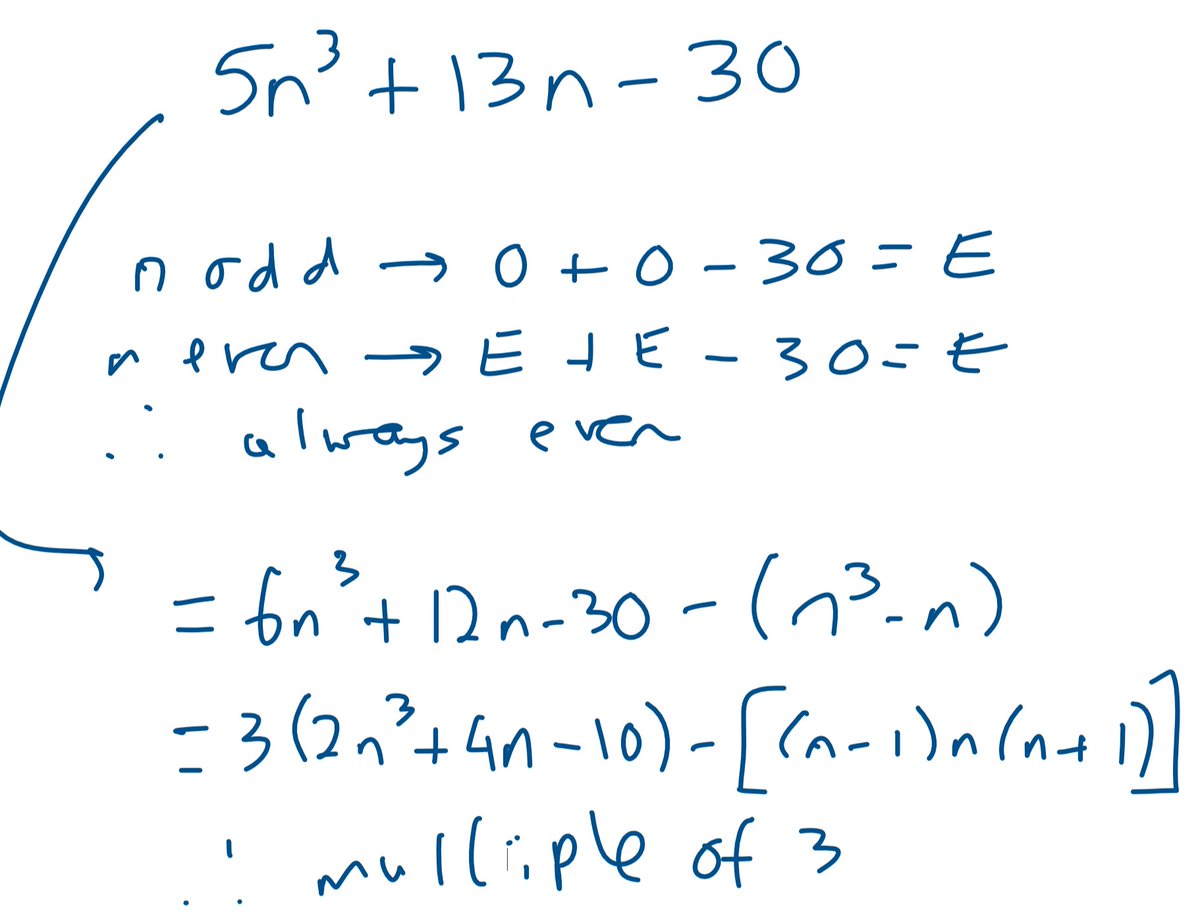 5n³ + 13n - 30
n odd → O + O - 30 = E
n even → E + E - 30 = E
∴ always even
= 6n³ + 12n - 30 - (n³ - n)
= 3(2n³ + 4n - 10) - [(n - 1)n(n + 1)]
∴ multiple of 3